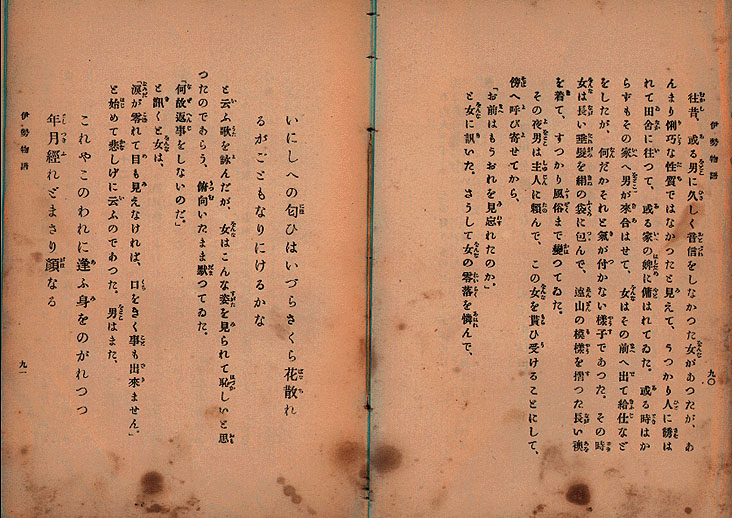 伊勢物語
九〇
往昔、或る男に久しく音信をしなかつた女があつたが、あ
んまり悧巧な性質ではなかつたと見えて、うつかり人に誘は
れて田舎に往つて、或る家の婢に傭はれてゐた。或る時はか
らずもその家へ男が來合はせて、女はその前へ出て給仕など
をしたが、何だかそれと氣が付かない樣子であつた。その時
女は長い垂髮を絹の袋に包んで、遠山の模樣を摺つた長い襖
を着て、すつかり風俗まで變つてゐた。
その夜男は主人に頼んで、この女を貰ひ受けることにして、
傍へ呼び寄せてから、
「お前はもうおれを見忘れたのか。」
と女に訊いた。さうして女の零落を憐んで、
いにしへの匂ひはいづらさくら花散れ
るがごともなりにけるかな
と云ふ歌を詠んだが、女はこんな姿を見られて恥しいと思
つたのであらう、俯向いたまま默つてゐた。
「何故返事をしないのだ。」
と訊くと女は、
「涙が零れて目も見えなければ、口をきく事も出來ません。」
と始めて悲しげに云ふのであつた。男はまた、
これやこのわれに逢ふ身をのがれつつ
年月經れどまさり顔なる
伊勢物語
九一